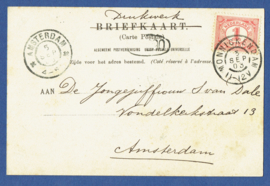 Drukwerk
BRIEFKAART.
(Carte Postale)
ALGEMEENE POSTVEREENIGING
Zijde voor het adres bestemd. (Côté réservé à l'adresse.)
AMSTERDAM
1
MONNIKENDAM
SEP
11-12V
AAN De Jongejuffrouw S van Dale
Vondelkerkstraat 13
Amsterdam